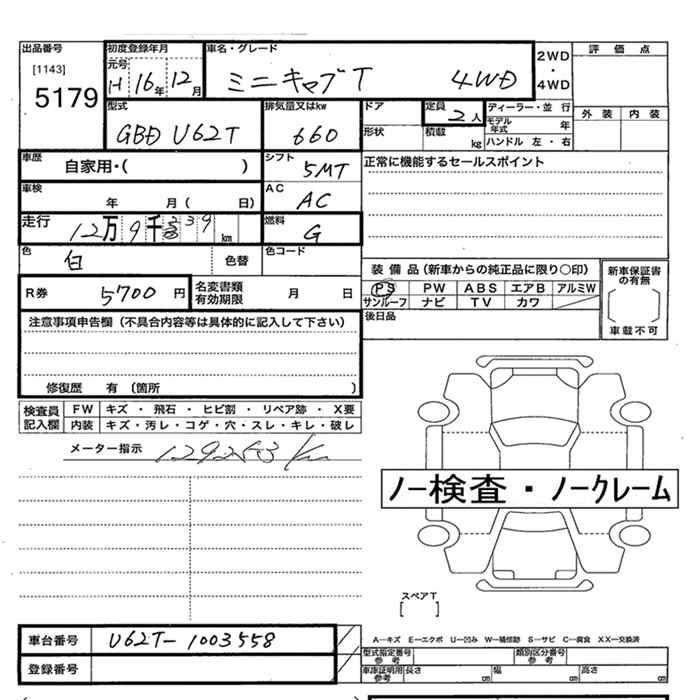 出品番号
[1143]
5179
初度登録年月
元号
H 16年 12月
車名・グレード
ミニキャブT 4WD
2WD
・
4WD
評価点
外装 内装
型式
GBD U62T
排気量又はkw
660
ドア
形状
定員
2人
積載
kg
ディーラー・並行
モデル年式 年
ハンドル 左・右
車歴
自家用・( )
シフト
5MT
正常に機能するセールスポイント
車検
年 月 ( 日)
AC
AC
走行
12万 9千 km
燃料
G
色
白
色替
色コード
装備品(新車からの純正品に限り○印)
PS PW ABS エアB アルミW
サンルーフ ナビ TV カワ
新車保証書の有無
車載不可
R券
5700 円
名変書類
有効期限
月 日
後日品
注意事項申告欄(不具合内容等は具体的に記入して下さい)
修復歴 有 (箇所 )
検査員記入欄
FW キズ・飛石・ヒビ割・リペア跡・X要
内装 キズ・汚レ・コゲ・穴・スレ・キレ・破レ
メーター指示
ノー検査・ノークレーム
スペアT
[ ]
車台番号
U62T-1003558
登録番号
A−キズ E−エクボ U−凹み W−補修跡 S−サビ C−腐食 XX−交換済
型式指定番号
参考
類別区分番号
参考
車庫証明用
参考
長さ cm 幅 cm 高さ cm